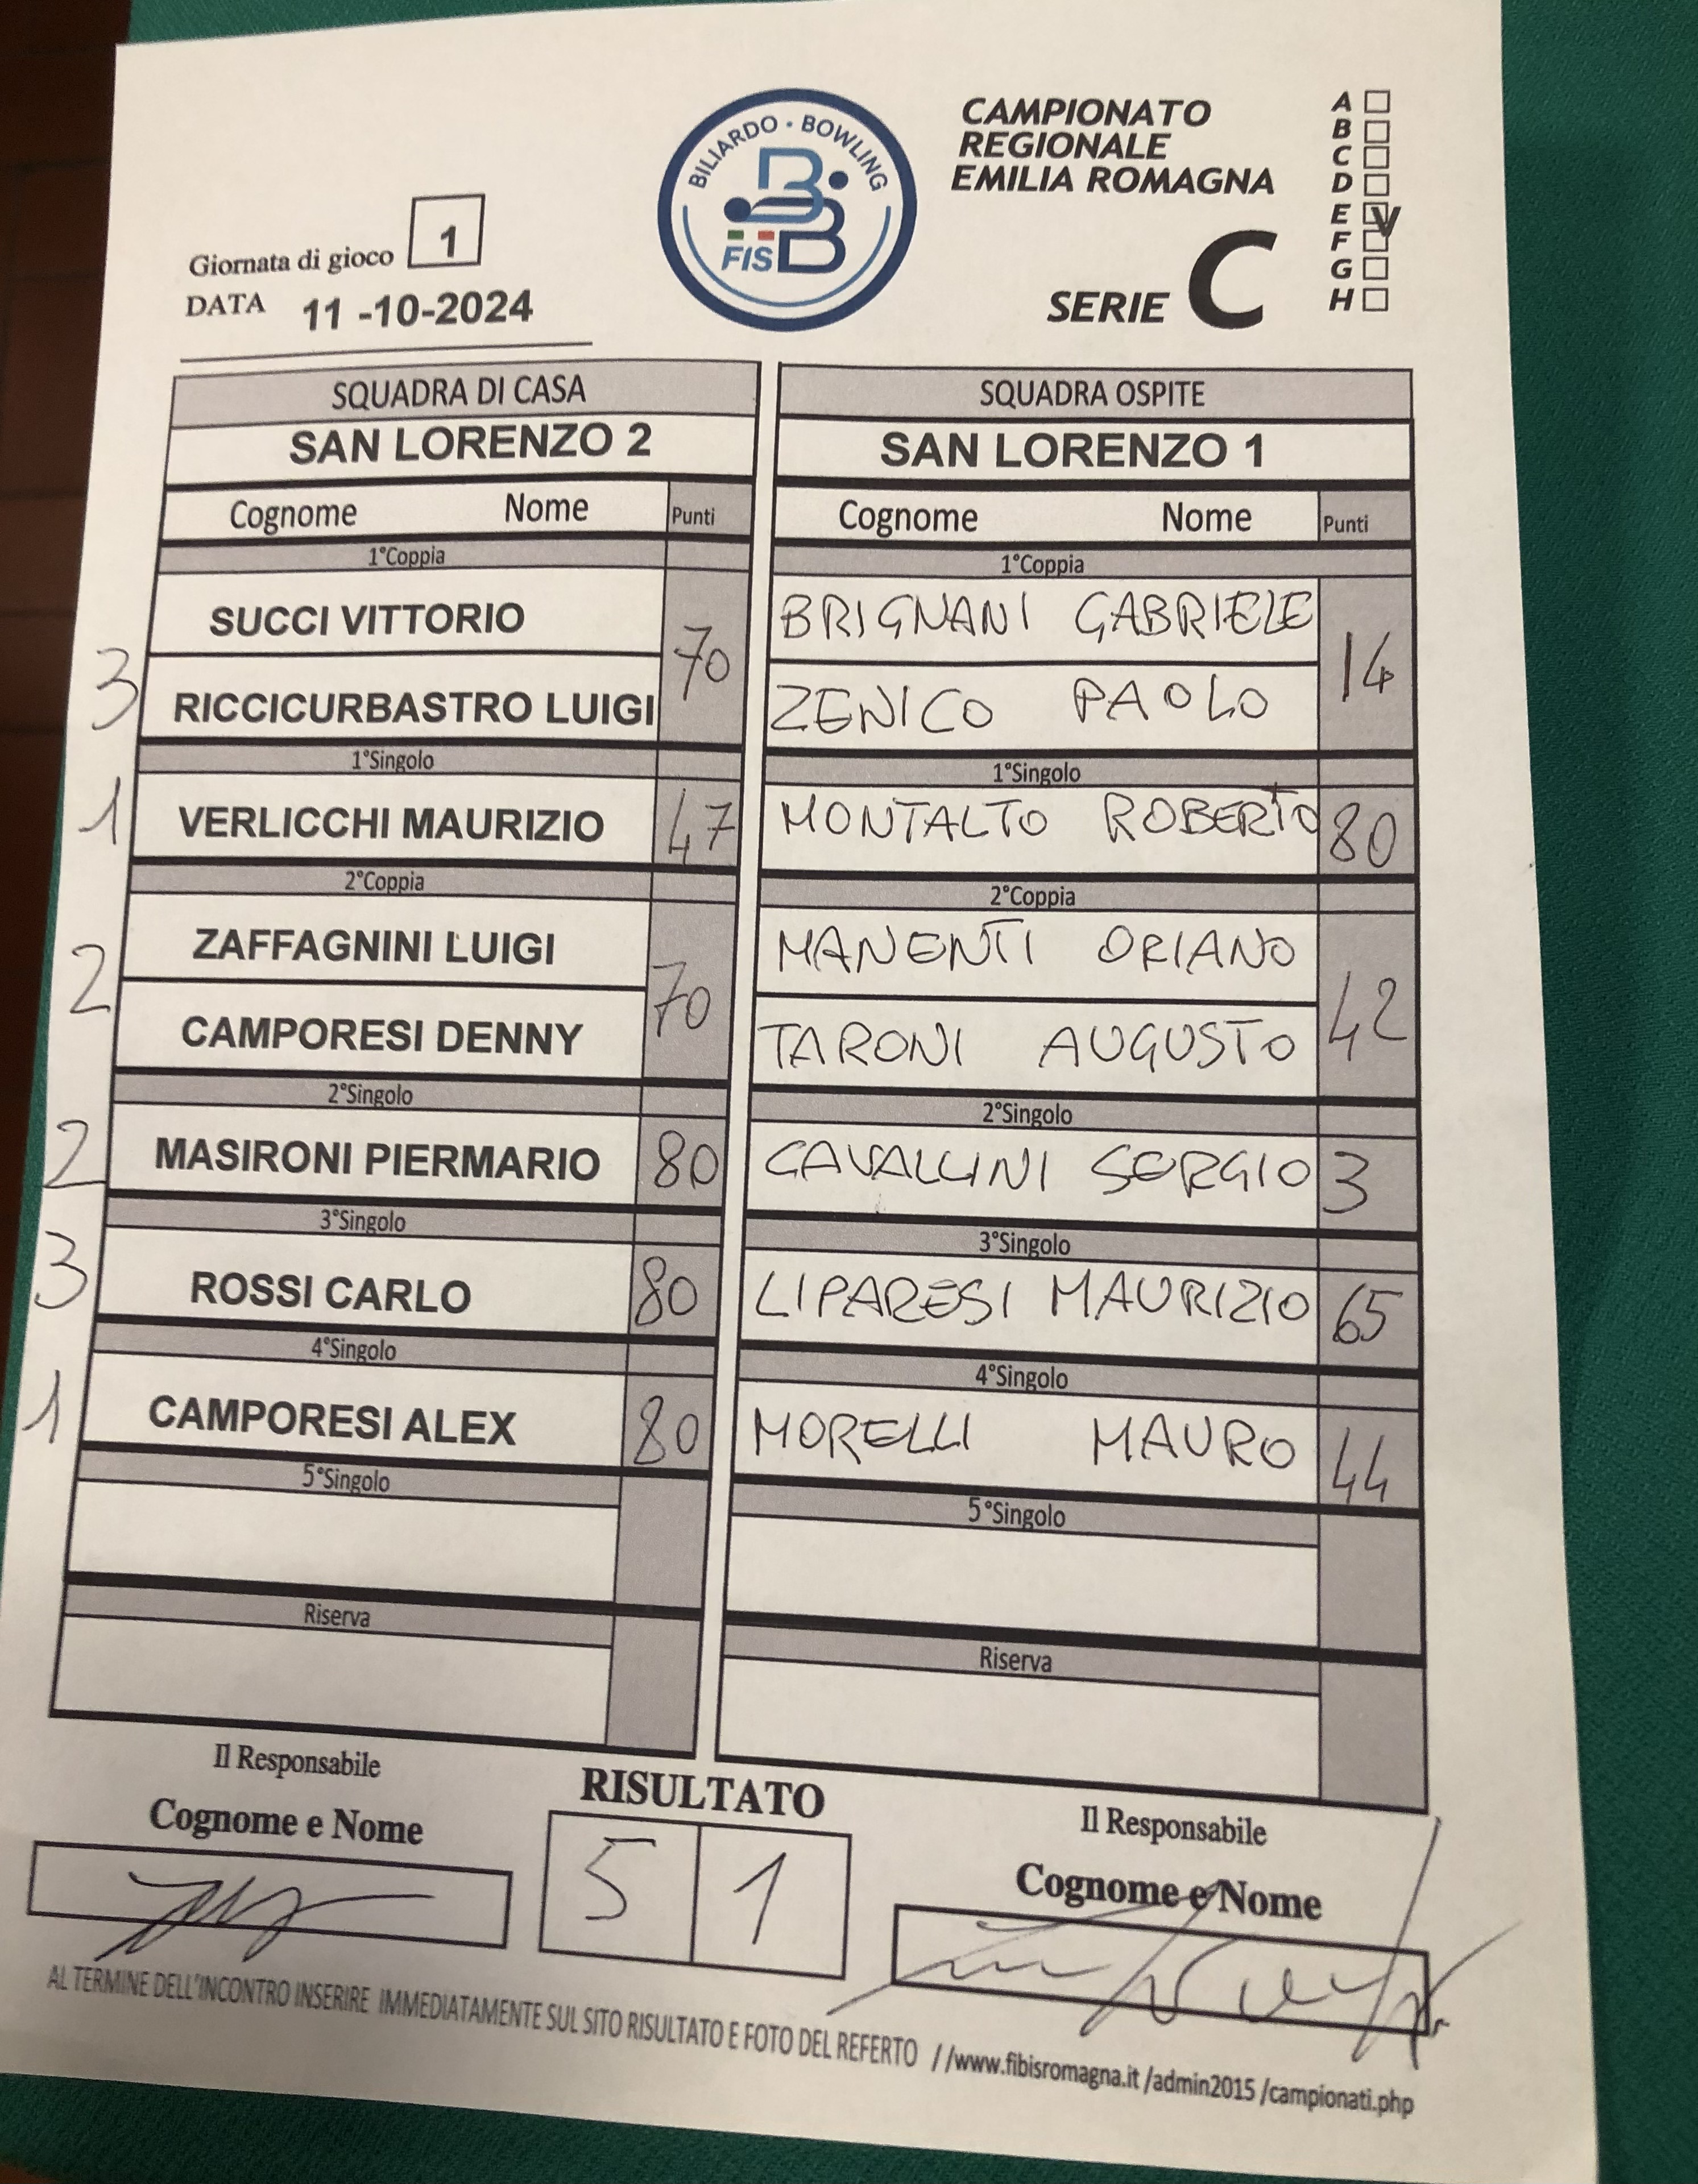 BILIARDO · BOWLING
FISBB
CAMPIONATO
REGIONALE
EMILIA ROMAGNA
SERIE C
A
B
C
D
E V
F
G
H
Giornata di gioco 1
DATA 11 -10-2024
SQUADRA DI CASA
SAN LORENZO 2
Cognome Nome Punti
1°Coppia
SUCCI VITTORIO
3 RICCICURBASTRO LUIGI 70
1°Singolo
1 VERLICCHI MAURIZIO 47
2°Coppia
ZAFFAGNINI LUIGI
2 CAMPORESI DENNY 70
2°Singolo
2 MASIRONI PIERMARIO 80
3°Singolo
3 ROSSI CARLO 80
4°Singolo
1 CAMPORESI ALEX 80
5°Singolo
Riserva
SQUADRA OSPITE
SAN LORENZO 1
Cognome Nome Punti
1°Coppia
BRIGNANI GABRIELE
ZENICO PAOLO 14
1°Singolo
MONTALTO ROBERTO 80
2°Coppia
MANENTI ORIANO
TARONI AUGUSTO 42
2°Singolo
CAVALLINI SERGIO 3
3°Singolo
LIPARESI MAURIZIO 65
4°Singolo
MORELLI MAURO 44
5°Singolo
Riserva
Il Responsabile
Cognome e Nome
RISULTATO
5 1
Il Responsabile
Cognome e Nome
AL TERMINE DELL'INCONTRO INSERIRE IMMEDIATAMENTE SUL SITO RISULTATO E FOTO DEL REFERTO //www.fibisromagna.it /admin2015 /campionati.php